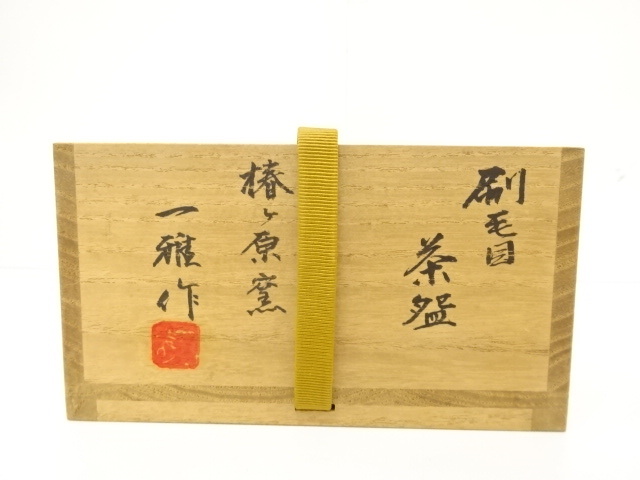 刷毛目
茶盌
椿ヶ原窯
一雅作